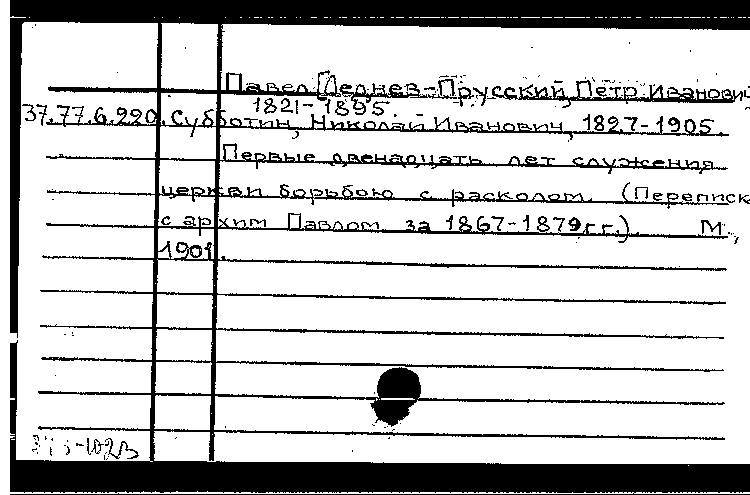 Павел [Леднев-Прусский, Петр Иванович
1821-1895.
37.77.6.220. Субботин, Николай Иванович, 1827-1905.
Первые двенадцать лет служения
церкви борьбою с расколом. (Переписк
с архим Павлом за 1867-1879гг.). М.,
1901.